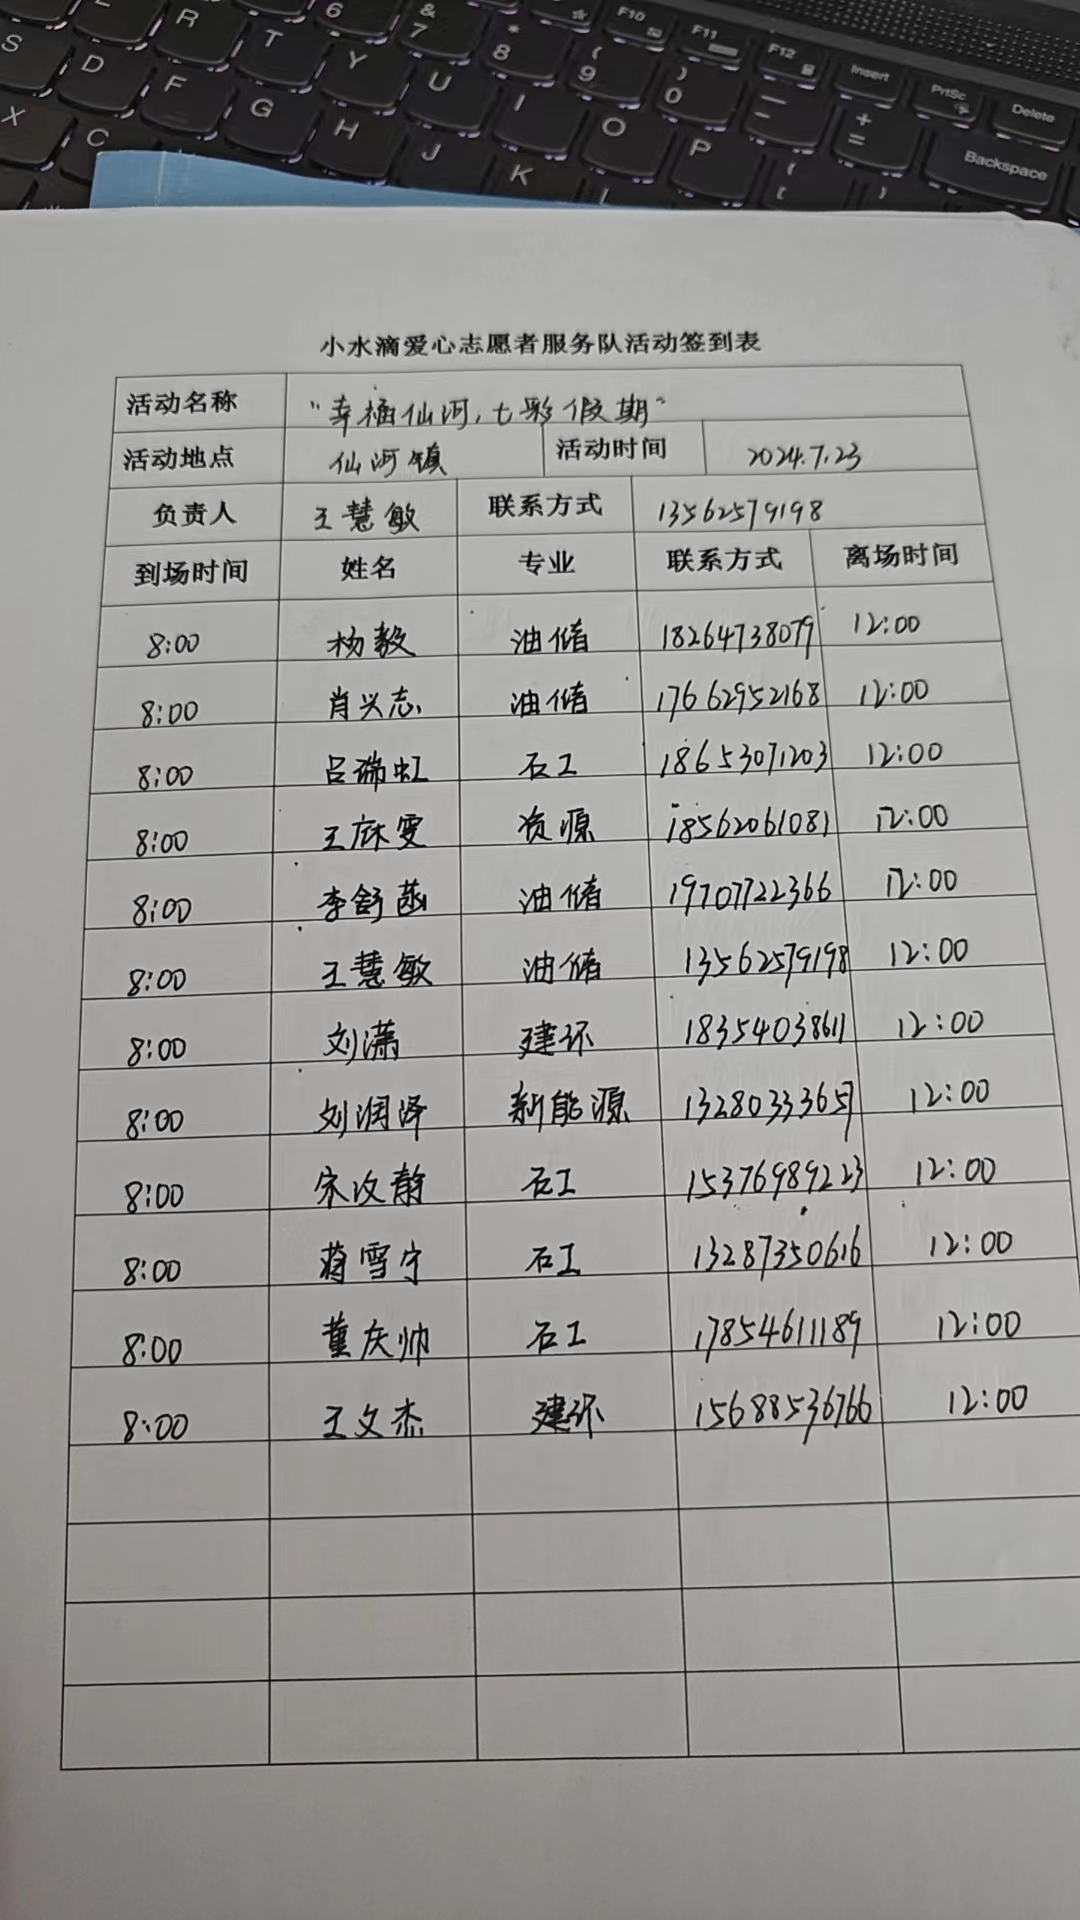 小水滴爱心志愿者服务队活动签到表
活动名称 "幸福仙河,七彩假期"
活动地点 仙河镇 活动时间 2024.7.23
负责人 王慧敏 联系方式 13562579198
到场时间 姓名 专业 联系方式 离场时间
8:00 杨毅 油储 18264738079 12:00
8:00 肖兴志 油储 17662952168 12:00
8:00 吕瑞虹 石工 18653071203 12:00
8:00 王庥雯 资源 18562061081 12:00
8:00 李舒菡 油储 19707722366 12:00
8:00 王慧敏 油储 13562579198 12:00
8:00 刘潇 建环 18354038611 12:00
8:00 刘润泽 新能源 12:00
8:00 宋汝静 石工 15376989223 12:00
8:00 蒋雪宁 石工 13287350616 12:00
8:00 董庆帅 石工 17854611189 12:00
8:00 王文杰 建环 15688536766 12:00